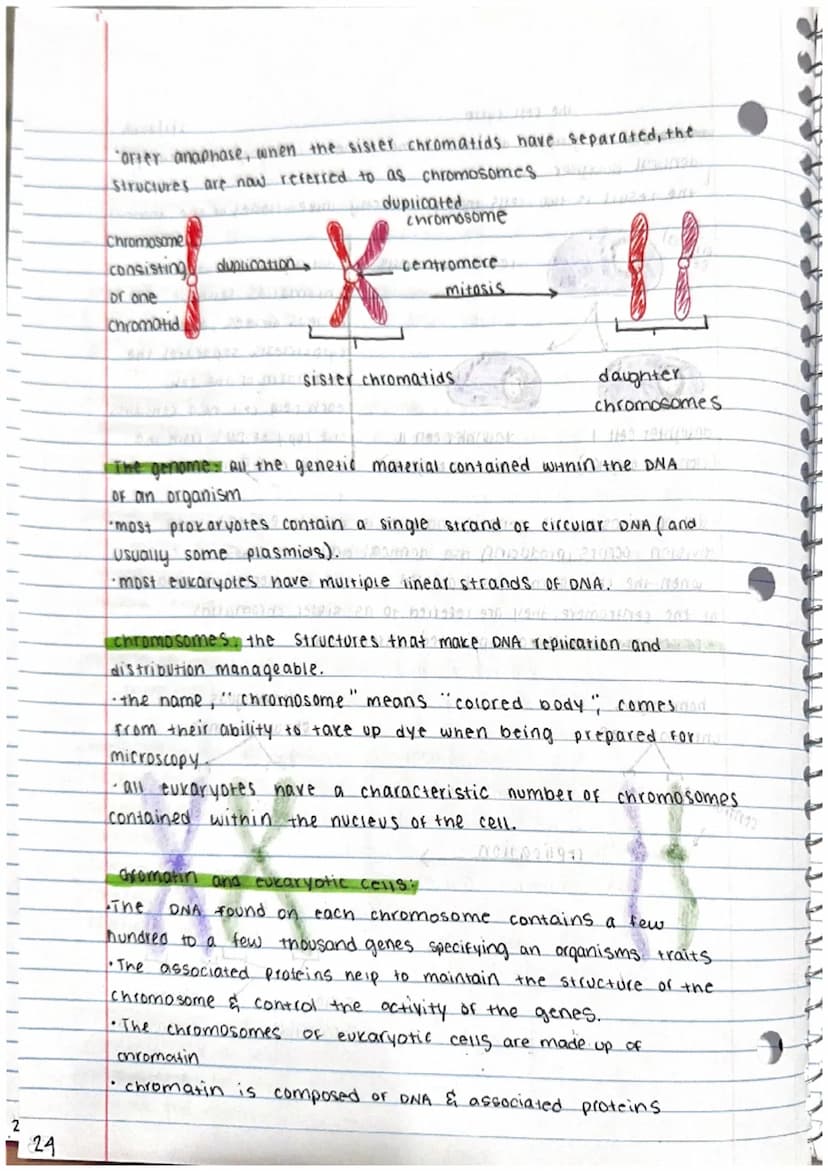 ·after anaphase, when the sister chromatids have separated, the
structures are now referred to as chromosomes
duplicated
chromosome
Chromosome
consisting
of one
chromatid
duplication
centromere
mitosis
sister chromatids
daughter
chromosomes
The genome: all the genetic material contained within the DNA
of an organism
·most prokaryotes contain a single strand of circular DNA (and
usually some plasmids).
·most eukaryotes have multiple linear strands of DNA.
chromosomes: the structures that make DNA replication and
distribution manageable.
·the name, "chromosome" means "colored body", comes
from their ability to take up dye when being prepared for
microscopy.
·all eukaryotes have a characteristic number of chromosomes
contained within the nucleus of the cell.
chromatin and eukaryotic cells:
·The DNA found on each chromosome contains a few
hundred to a few thousand genes specifying an organisms traits
·The associated proteins help to maintain the structure of the
chromosome & control the activity of the genes.
·The chromosomes of eukaryotic cells are made up of
chromatin
·chromatin is composed of DNA & associated proteins
2
24